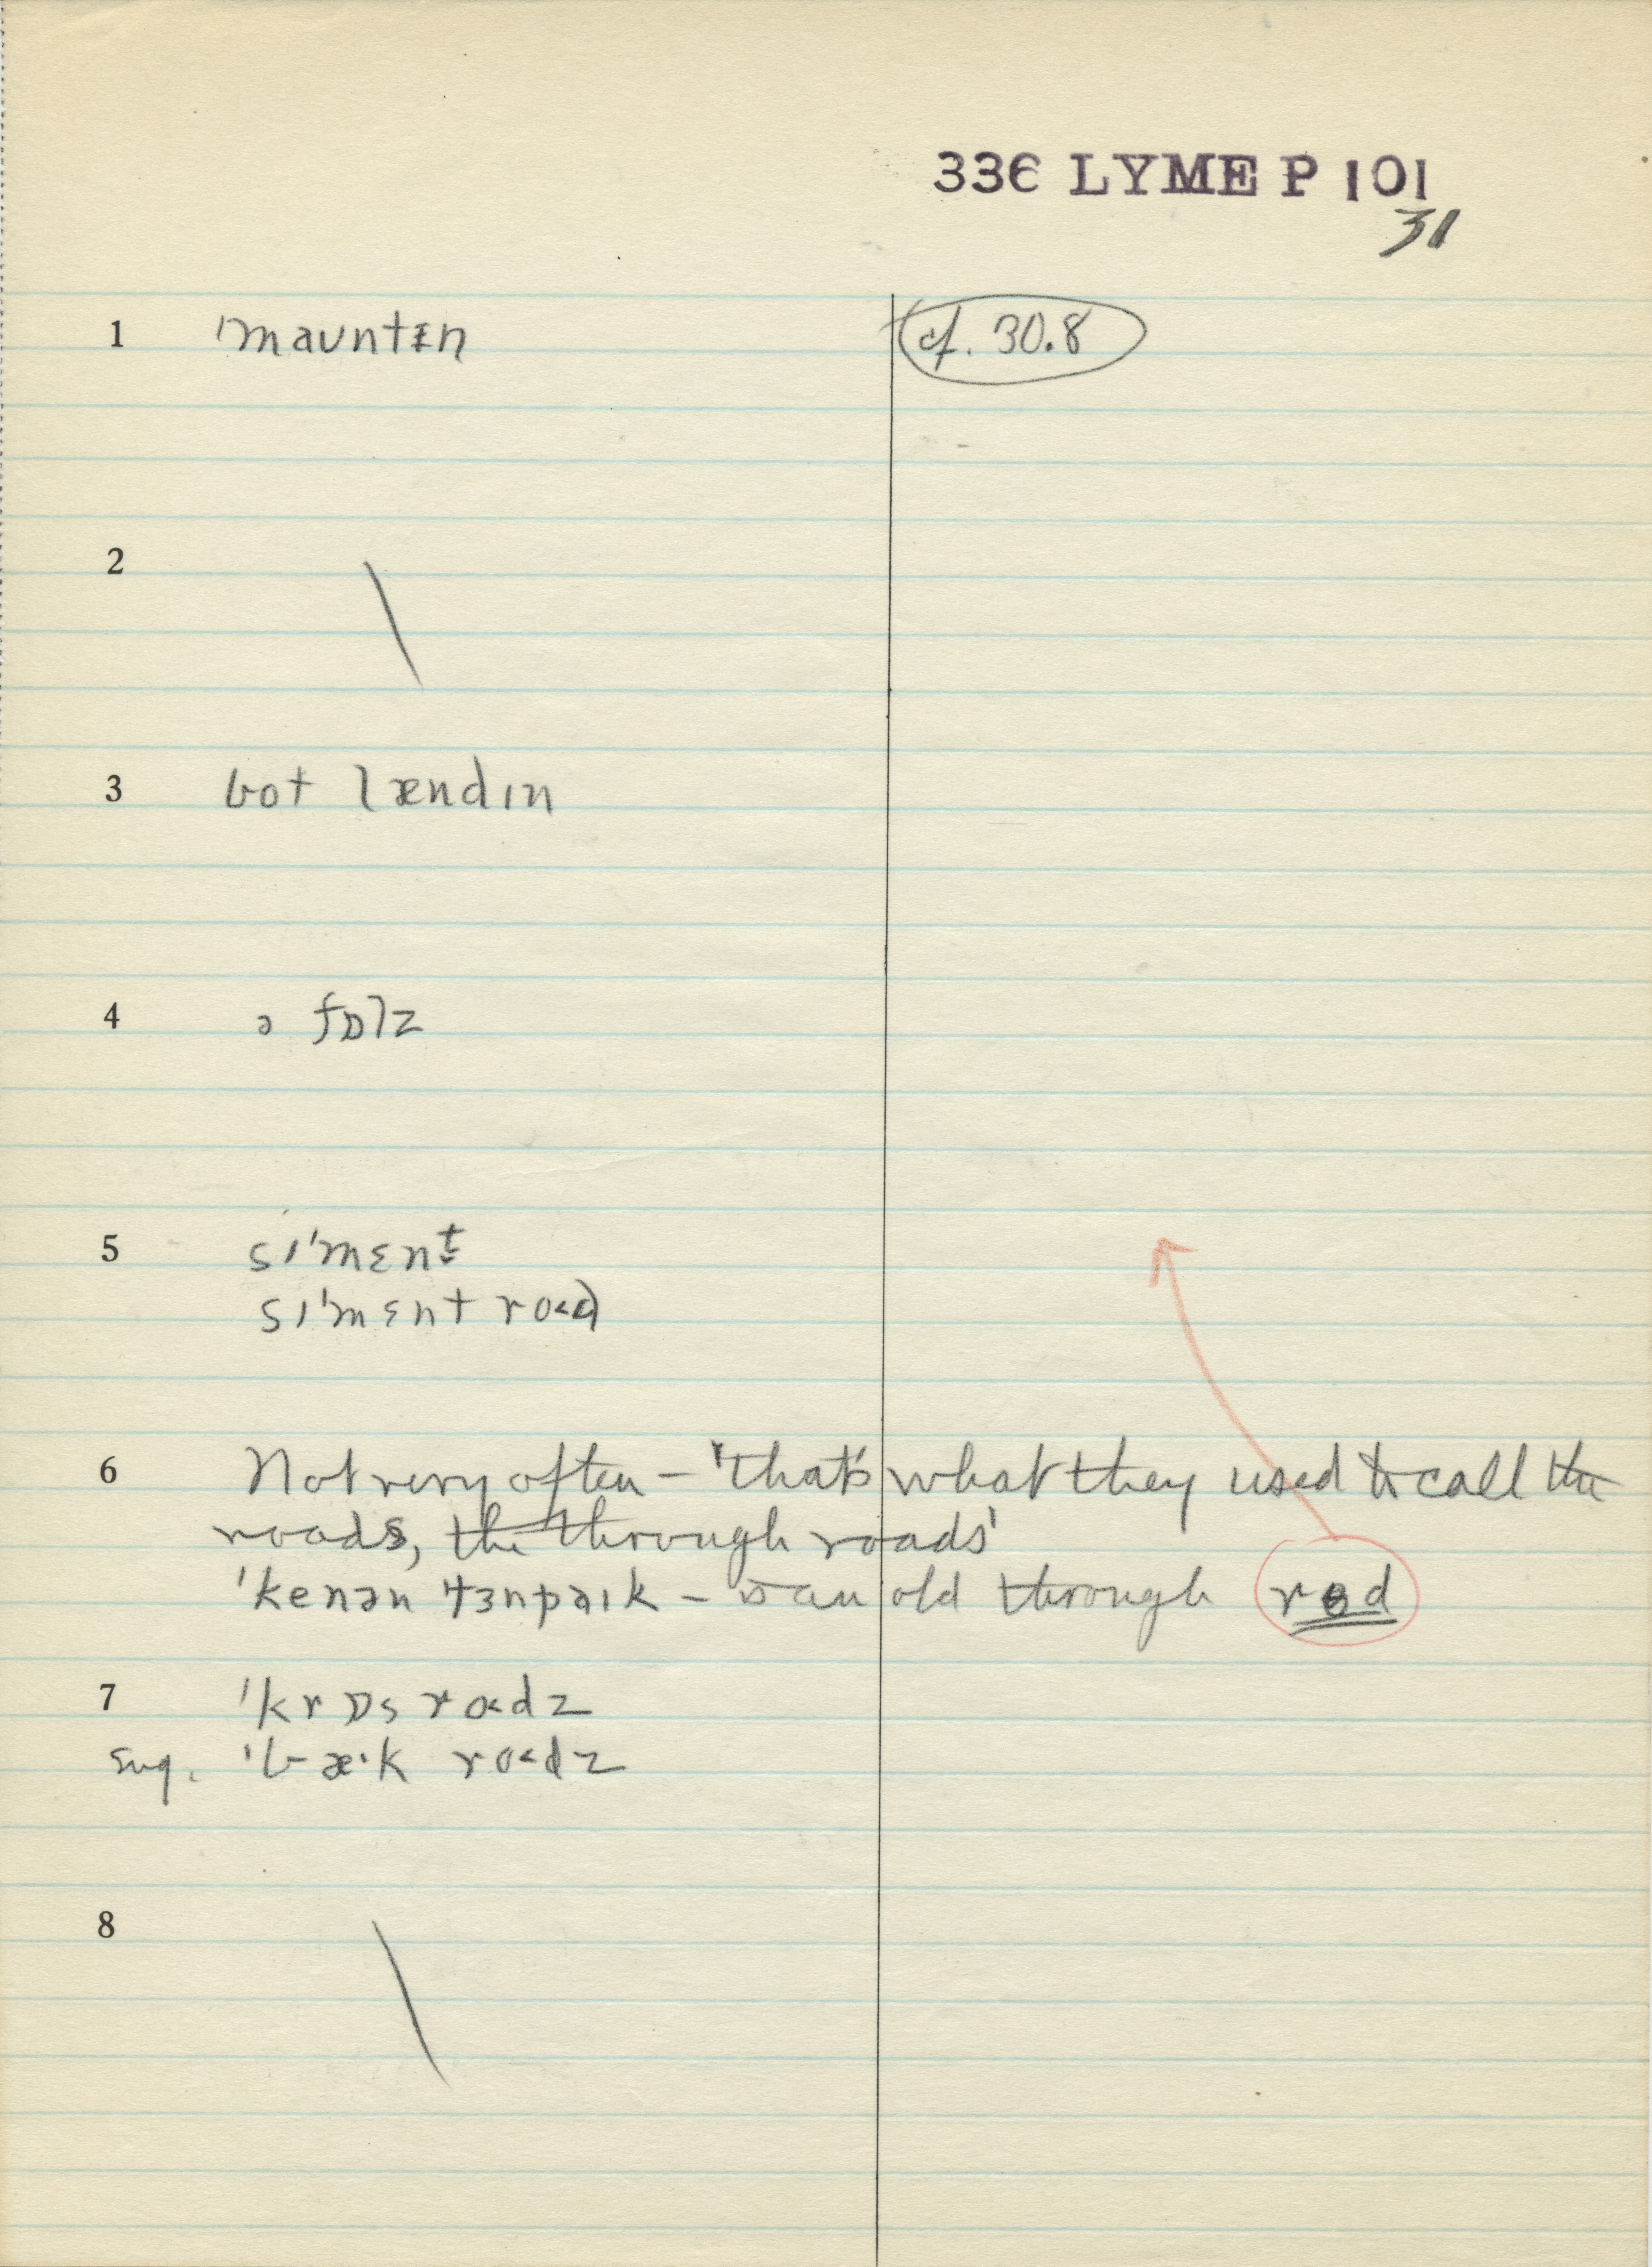 336 LYME P 101
31
1 ˈmaʊntɪn cf. 30.8
2
3 bot lændɪn
4 ə fɒlz
5 sɪˈmɛnt
sɪˈmɛnt ro˂d
6 Not very often – 'that's what they used to call the
roads, the through roads'
ˈkenən ˈtɜnpaɪk – is an old through rɵd
7 ˈkrɒs ro˂dz
sug. ˈbæˑk ro˂dz
8